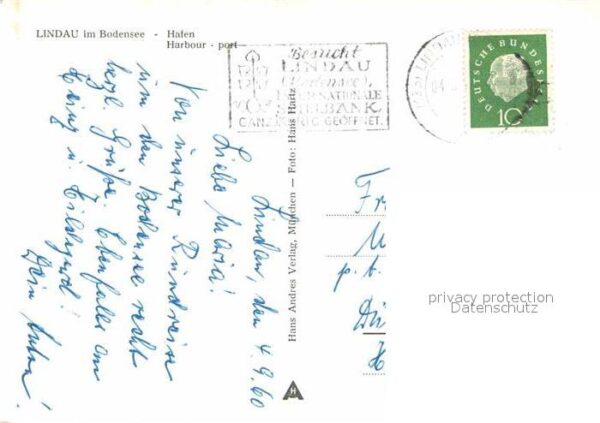 LINDAU im Bodensee - Hafen
Harbour - port
Besucht
LINDAU
(Bodensee)
INTERNATIONALE
SPIELBANK
GANZJÄHRIG GEÖFFNET.
DEUTSCHE BUNDESPOST
10
Lindau, den 4.9.60
Liebe Maria!
Von unserer Rundreise
um den Bodensee recht
herzl. Grüße. Ebenfalls an
u. Hildegard!
Dein Anton!
Hans Andres Verlag, München — Foto: Hans Hartz
H
A
Fr
p. b.
privacy protection
Datenschutz